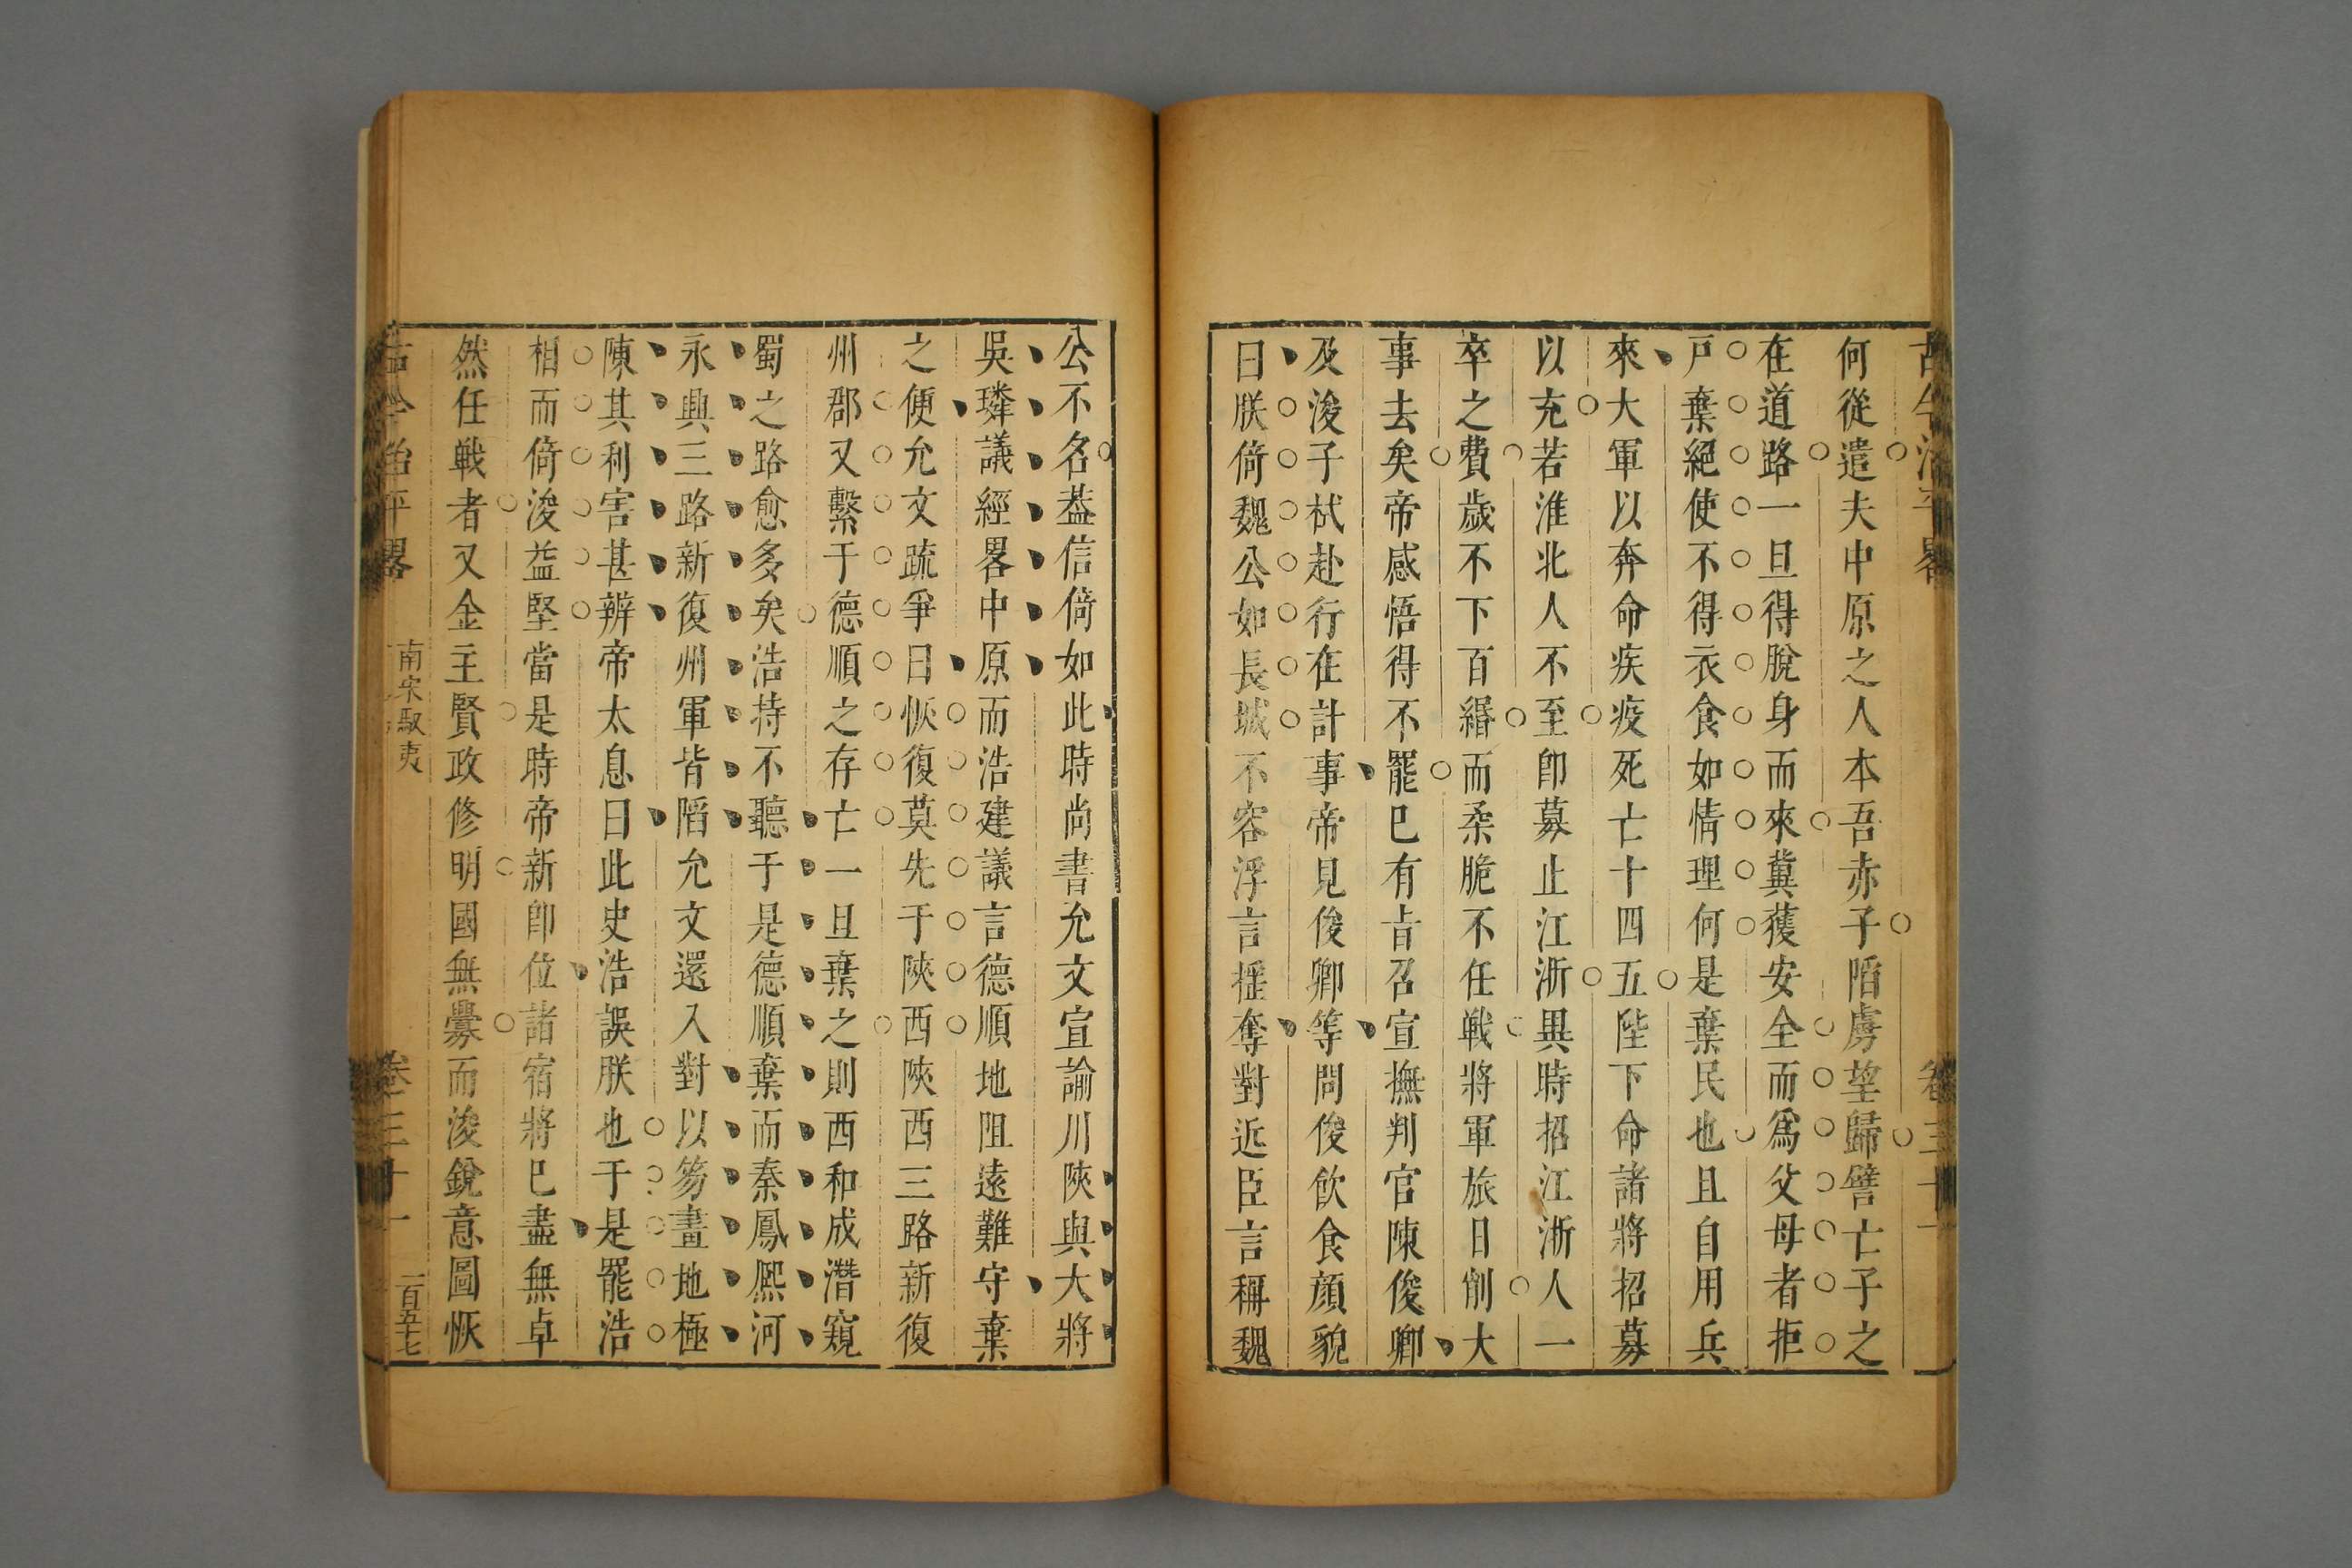 古今治平畧
卷三十一
何從遣夫中原之人本吾赤子陷虜望歸譬亡子之
在道路一旦得脫身而來冀獲安全而爲父母者拒
戸棄絕使不得衣食如情理何是棄民也且自用兵
來大軍以奔命疾疫死亡十四五陛下命諸將招募
以充若淮北人不至卽募止江浙異時招江浙人一
卒之費歲不下百緡而柔脆不任戰將軍旅日削大
事去矣帝感悟得不罷巳有㫖召宣撫判官陳俊卿
及浚子栻赴行在計事帝見俊卿等問俊飲食顔貌
曰朕倚魏公如長城不容浮言搖奪對近臣言稱魏
公不名葢信倚如此時尚書允文宣諭川陜與大將
吳璘議經畧中原而浩建議言德順地阻遠難守棄
之便允文疏爭曰恢復莫先于陜西陜西三路新復
州郡又繫于德順之存亡一旦棄之則西和成潛窺
蜀之路愈多矣浩持不聽于是德順棄而秦鳳熈河
永興三路新復州軍皆陷允文還入對以笏畫地極
陳其利害甚辨帝太息曰此史浩誤朕也于是罷浩
相而倚浚益堅當是時帝新卽位諸宿將巳盡無卓
然任戰者又金主賢政修明國無釁而浚銳意圖恢
古今治平畧
南宋馭夷
卷三十一
一百五十七